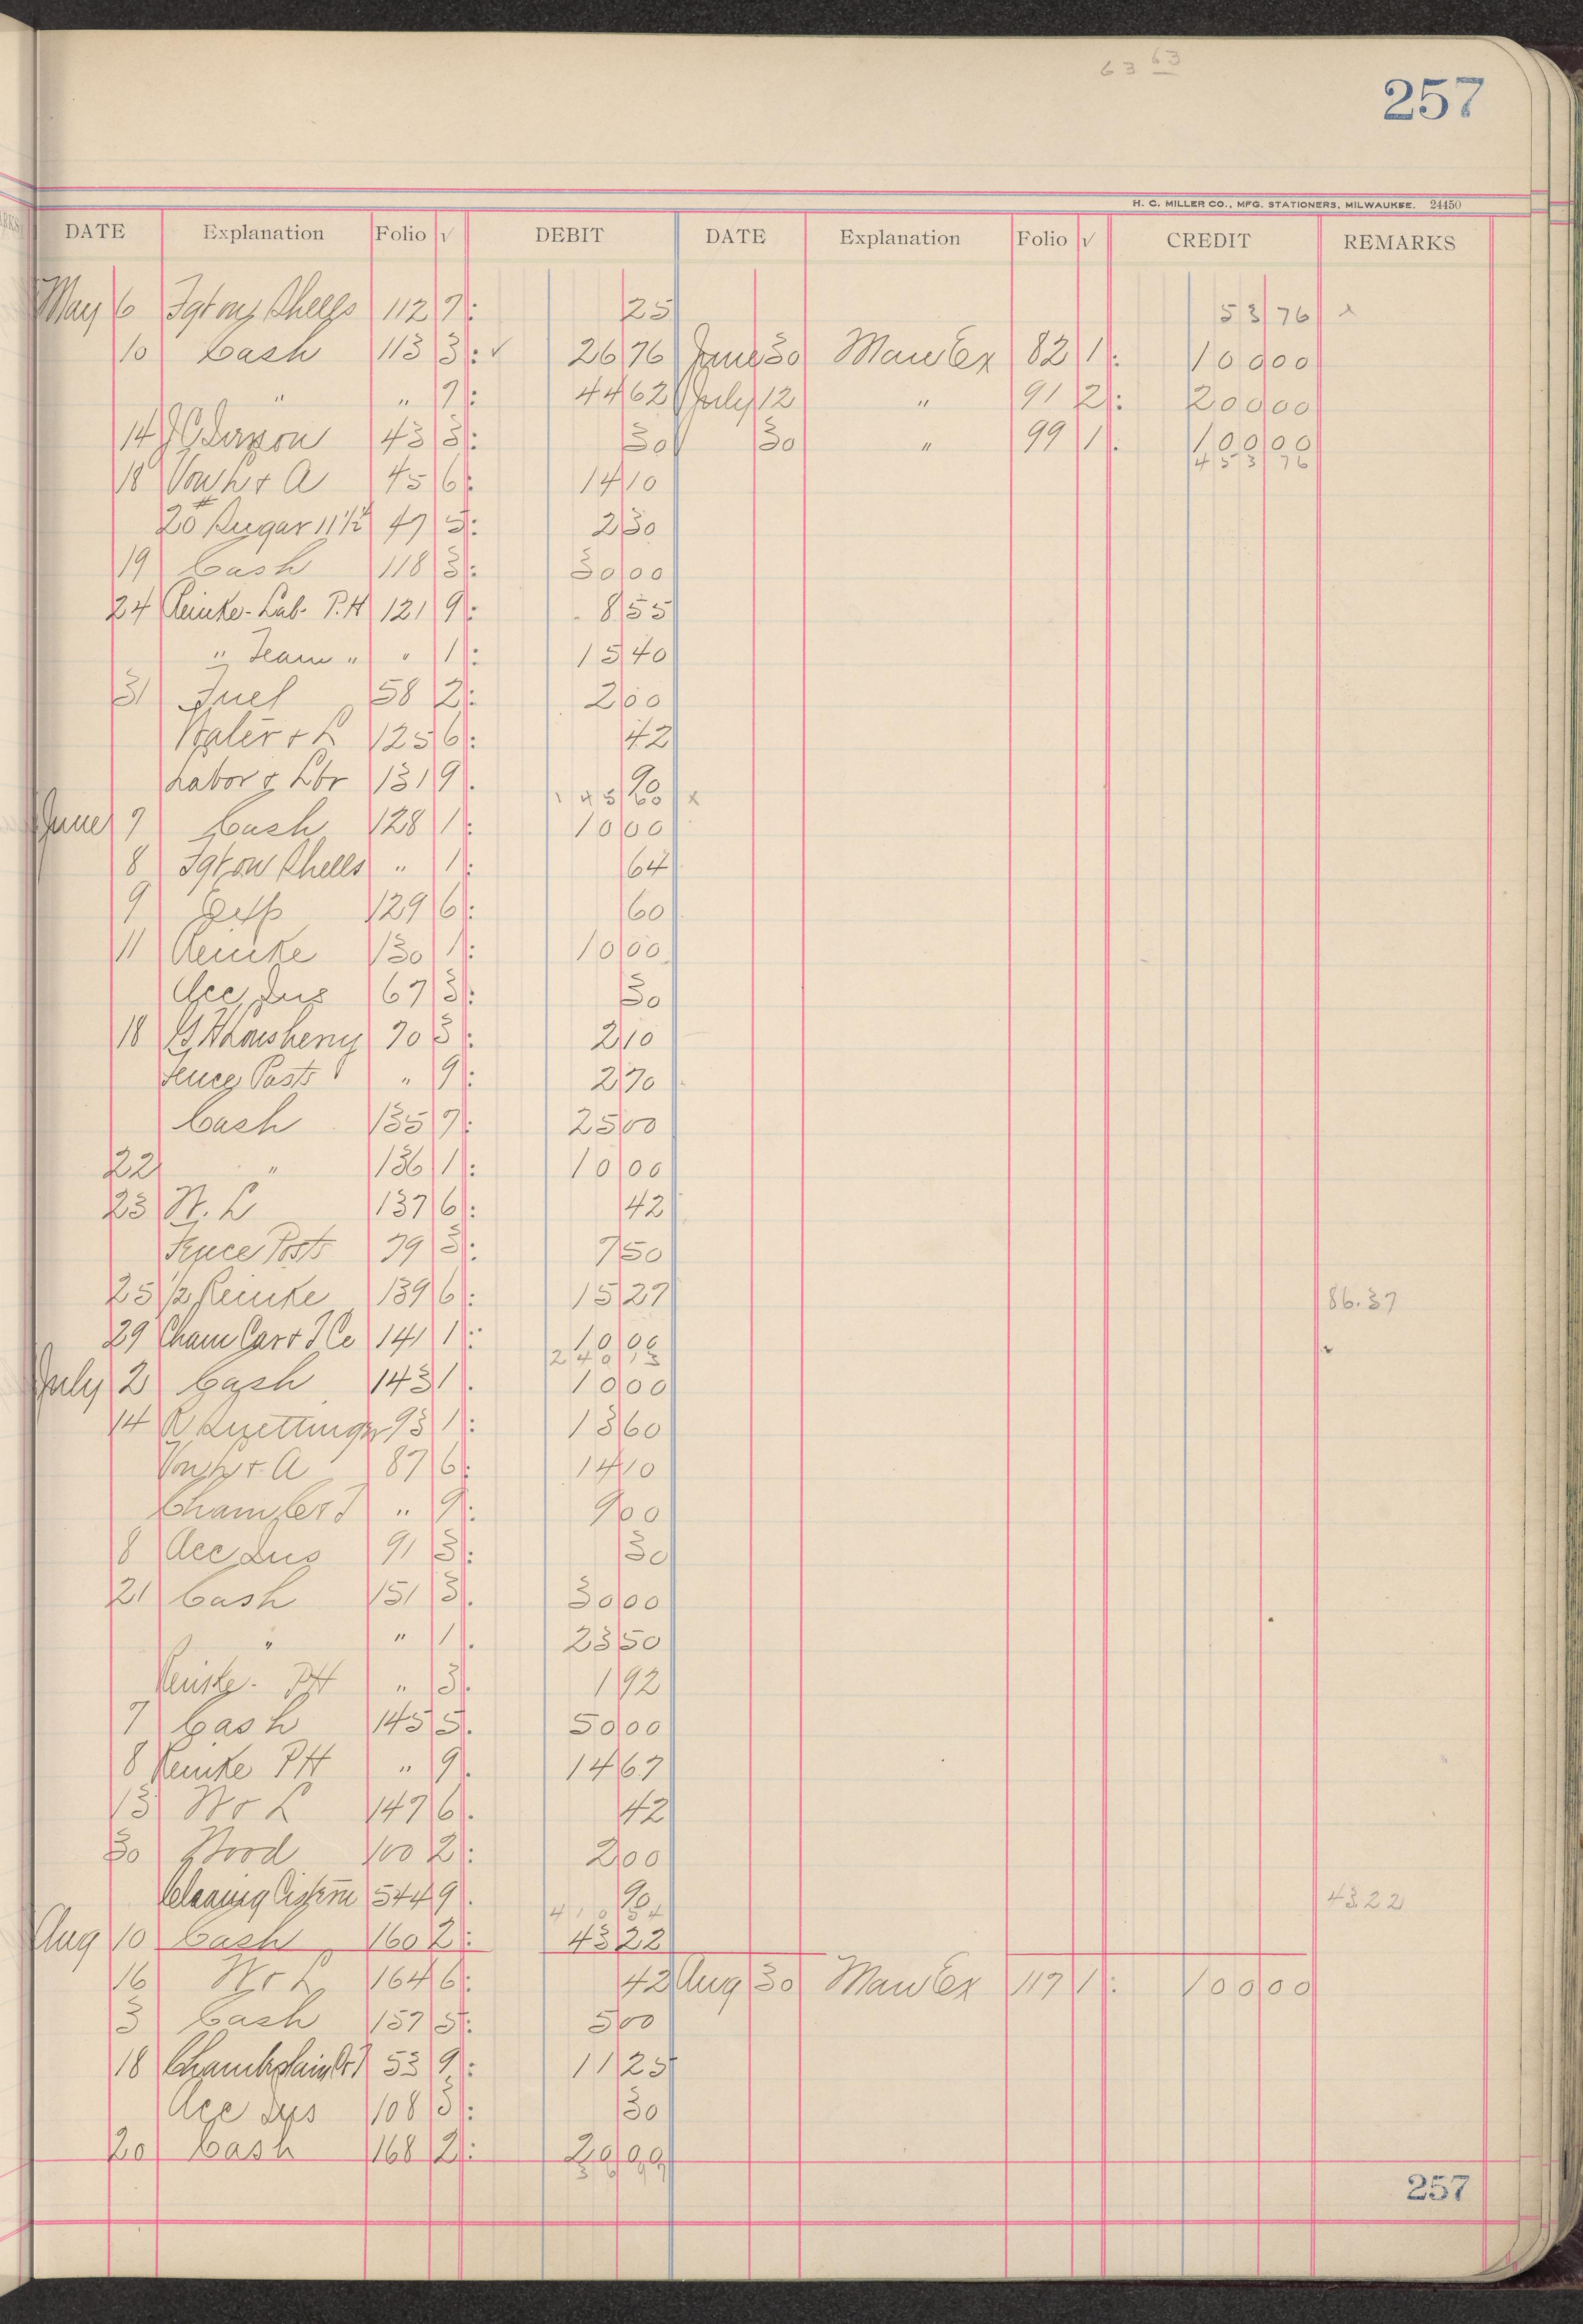 63 63
257
H. C. MILLER CO., MFG. STATIONERS, MILWAUKEE. 24450
DATE Explanation Folio √ DEBIT DATE Explanation Folio √ CREDIT REMARKS
May 6 Fgt on Shells 112 7: 25 53 76 x
10 Cash 113 3: √ 26 76 June 30 Man Ex 82 1: 100 00
" " 7: 44 62 July 12 " 91 2: 200 00
14 43 3: 30 30 " 99 1: 100 00
453 76
18 & A 45 6: 14 10
20# Sugar 11½ 47 5: 2 30
19 Cash 118 3: 30 00
24 Reinke - Lab. P.H 121 9: 8 55
" Team " " 1: 15 40
31 Fuel 58 2: 2 00
Water & L 125 6: 42
Labor & Lbr 131 9: 90
June 7 Cash 128 1: 10 00
8 Fgt on Shells " 1: 64
9 129 6: 60
11 Reinke 130 1: 10 00
Acc Ins 67 3: 30
18 70 3: 2 10
Fence Posts " 9: 2 70
Cash 135 7: 25 00
22 " 136 1: 10 00
23 W. L 137 6: 42
Fence Posts 79 3: 7 50
25 ½ Reinke 139 6: 15 27 86.37
29 Cham Car & I Co 141 1: 10 00
July 2 Cash 143 1: 10 00
14 93 1: 13 60
& A 87 6: 14 10
" 9: 9 00
8 Acc Ins 91 3: 30
21 Cash 151 3: 30 00
" " 1: 23 50
Reinke - PH " 3: 1 92
7 Cash 145 5: 50 00
8 Reinke PH " 9: 14 67
13 W & L 147 6: 42
30 Wood 100 2: 2 00
Cleaning Cistern 544 9: 90 43 22
Aug 10 Cash 160 2: 43 22
16 W & L 164 6: 42 Aug 30 Man Ex 119 1: 100 00
3 Cash 157 5: 5 00
18 53 9: 11 25
Acc Ins 108 3: 30
20 Cash 168 2: 20 00
257